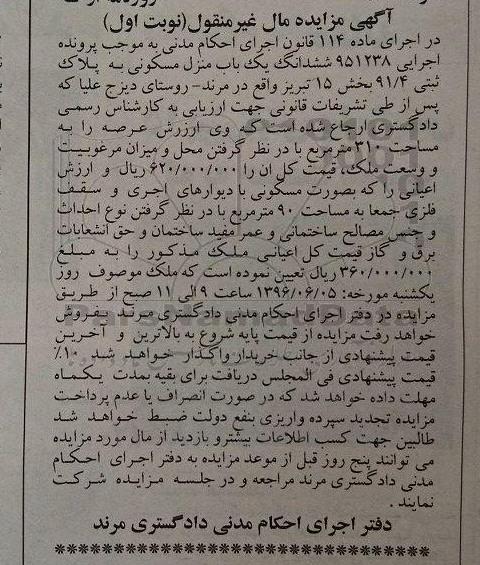 آگهی مزایده مال غیرمنقول(نوبت اول)
در اجرای ماده ۱۱۴ قانون اجرای احکام مدنی به موجب پرونده
اجرایی ۹۵۱۲۳۸ ششدانگ یک باب منزل مسکونی به پلاک
ثبتی ۹۱/۴ بخش ۱۵ تبریز واقع در مرند- روستای دیزج علیا که
پس از طی تشریفات قانونی جهت ارزیابی به کارشناس رسمی
دادگستری ارجاع شده است که وی ارزش عرصه را به
مساحت ۳۱۰ مترمربع با در نظر گرفتن محل و میزان مرغوبیت
و وسعت ملک، قیمت کل ان را ۶۲۰/۰۰۰/۰۰۰ ریال و ارزش
اعیانی را که بصورت مسکونی با دیوارهای اجری و سقف
فلزی جمعا به مساحت ۹۰ مترمربع با در نظر گرفتن نوع احداث
و جنس مصالح ساختمانی و عمر مفید ساختمان و حق انشعابات
برق و گاز قیمت کل اعیانی ملک مذکور را به مبلغ
۳۶۰/۰۰۰/۰۰۰ ریال تعیین نموده است که ملک موصوف روز
یکشنبه مورخه: ۱۳۹۶/۰۶/۰۵ ساعت ۹ الی ۱۱ صبح از طریق
مزایده در دفتر اجرای احکام مدنی دادگستری مرند بفروش
خواهد رفت مزایده از قیمت پایه شروع به بالاترین و آخرین
قیمت پیشنهادی از جانب خریدار واگذار خواهد شد ۱۰٪
قیمت پیشنهادی فی المجلس دریافت برای بقیه بمدت یکماه
مهلت داده خواهد شد که در صورت انصراف یا عدم پرداخت
مزایده تجدید سپرده واریزی بنفع دولت ضبط خواهد شد
طالبین جهت کسب اطلاعات بیشترو بازدید از مال مورد مزایده
می توانند پنج روز قبل از موعد مزایده به دفتر اجرای احکام
مدنی دادگستری مرند مراجعه و در جلسه مزایده شرکت
نمایند .
دفتر اجرای احکام مدنی دادگستری مرند